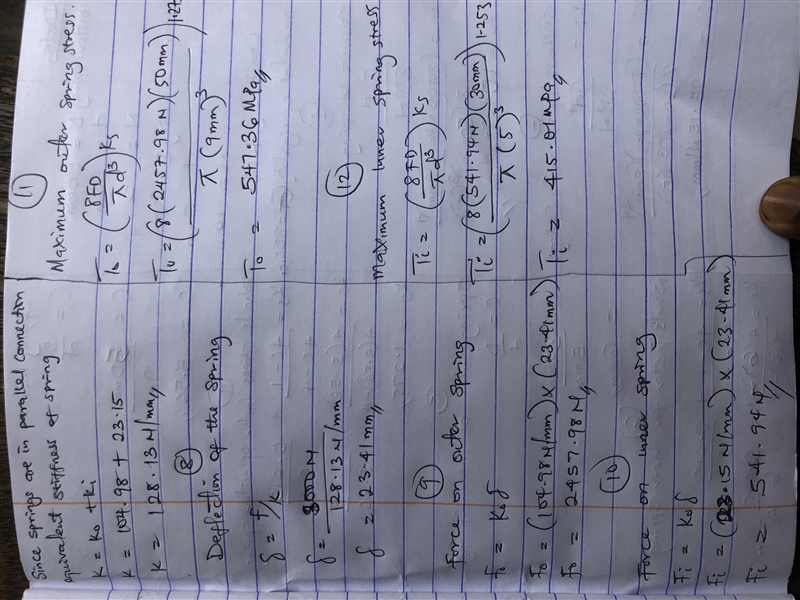 Since springs are in parallel connection
equivalent stiffness of spring
K = Ko + Ki
K = 104.98 + 23.15
K = 128.13 N/mm
⑧
Deflection of the spring
δ = f/k
δ = 3000N / 128.13 N/mm
δ = 23.41mm
⑨
Force on outer spring
Fo = Koδ
Fo = (104.98 N/mm) × (23.41mm)
Fo = 2457.98 N
⑩
Force on inner spring
Fi = Koδ
Fi = (23.15 N/mm) × (23.41mm)
Fi = 541.94 N
⑪
Maximum outer spring stress.
To = (8FD / πd³) Ks
To = (8(2457.98 N)(50mm) / π(9mm)³) 1.27
To = 547.36 MPa
⑫
Maximum inner spring stress
Ti = (8FD / πd³) Ks
Ti = (8(541.94N)(30mm) / π(5)³) 1.253
Ti = 415.01 MPa